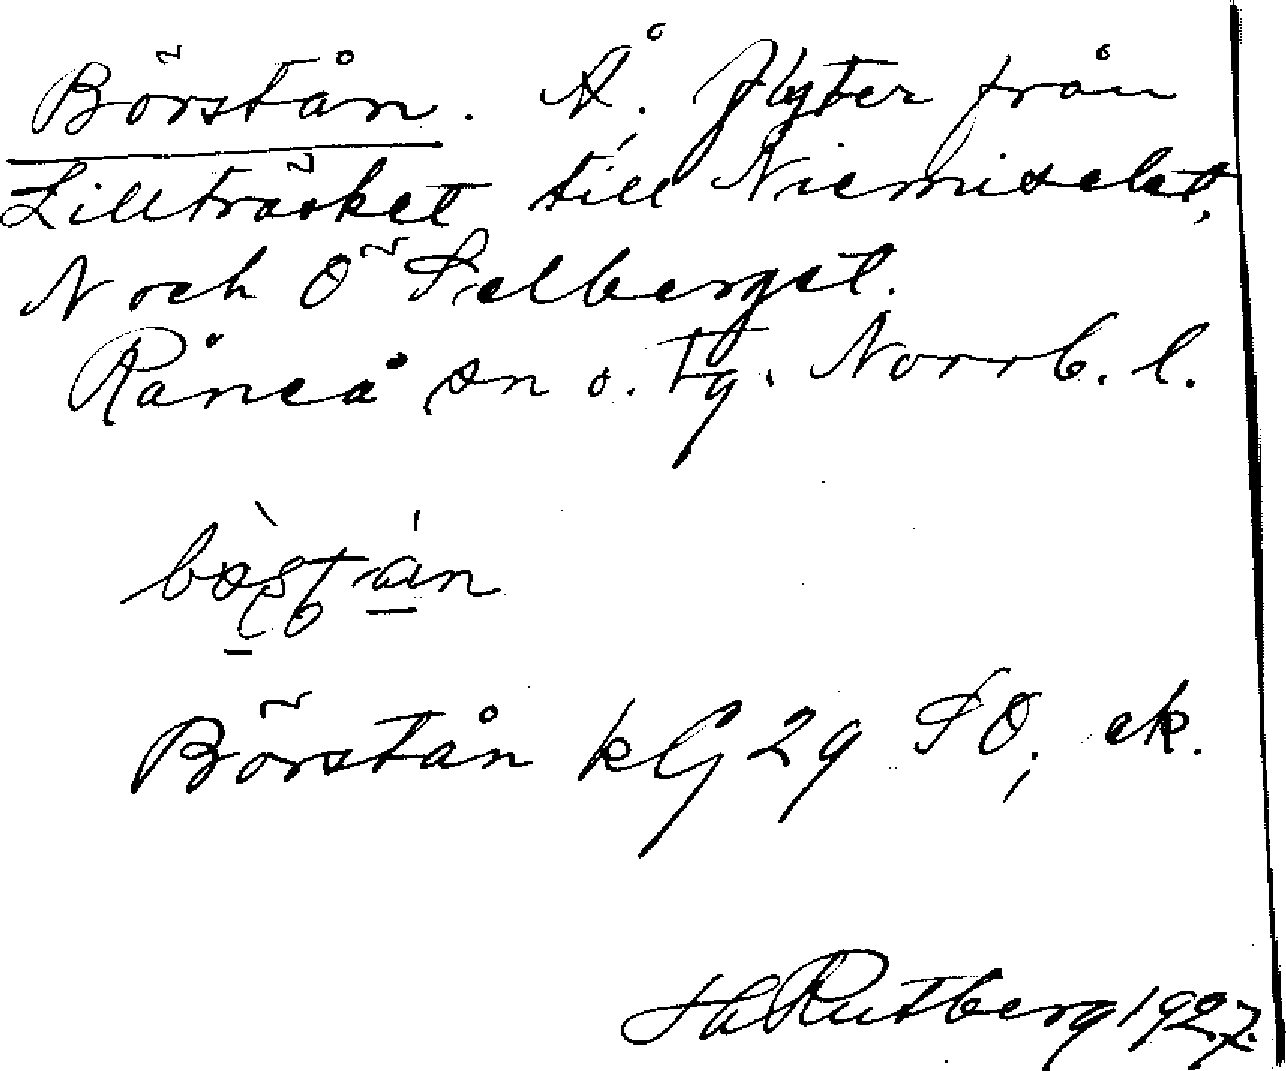 Börstån. Å. Flyter från
Lillträsket till Niemiselet,
N och Ö Selberget.
Råneå sn o. tg. Norrb. l.
Börstån kG 29 SO; ek.
Hh Rutberg 1927.